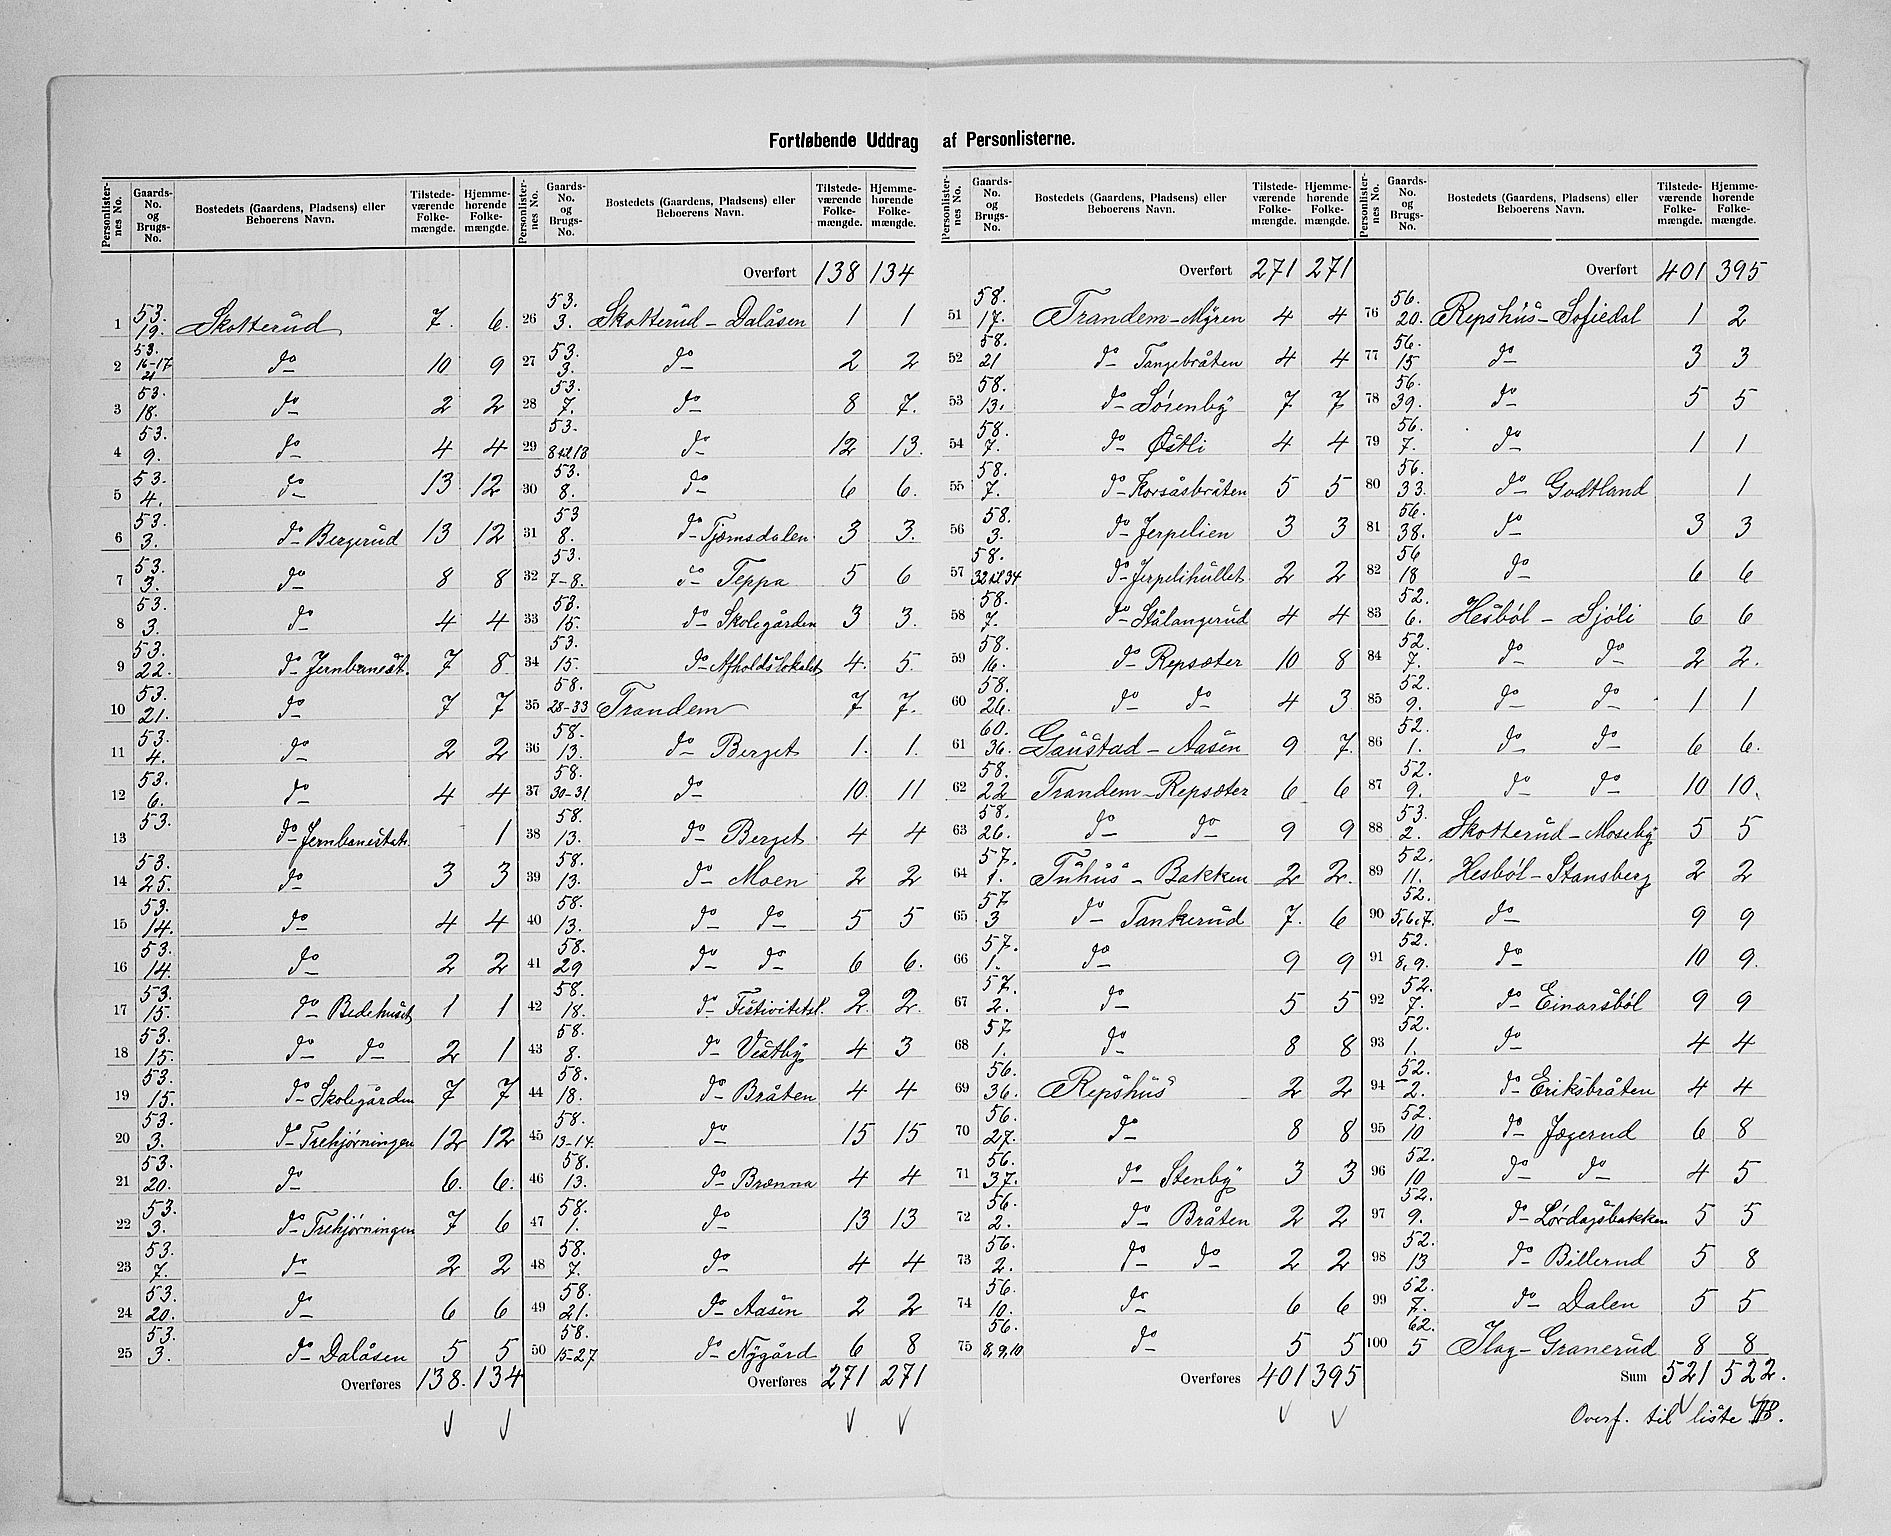 Fortløbende Uddrag af Personlisterne.
Personlister-nes No. | Gaards-No. og Brugs-No. | Bostedets (Gaardens, Pladsens) eller Beboerens Navn. | Tilstede-værende Folke-mængde. | Hjemme-hørende Folke-mængde.
1 | 53. 19. | Skotterud | 7. | 6.
2 | 53. 16-17 21 | do | 10 | 9
3 | 53. 18. | do | 2 | 2
4 | 53. 9. | do | 4 | 4
5 | 53. 4. | do | 13 | 12
6 | 53. 3. | do Bergerud | 13 | 12
7 | 53. 3. | do | 8 | 8
8 | 53. 3. | do | 4 | 4
9 | 53. 22. | do Jernbanest. | 7 | 8
10 | 53. 21. | do | 7 | 7
11 | 53. 4. | do | 2 | 2
12 | 53. 6. | do | 4 | 4
13 | 53. | do Jernbanestat. | | 1
14 | 53. 25. | do | 3 | 3
15 | 53. 14. | do | 4 | 4
16 | 53. 14. | do | 2 | 2
17 | 53. 15. | do Bedehuset | 1 | 1
18 | 53. 15. | do do | 2 | 1
19 | 53. 15. | do Skolegården | 7 | 7
20 | 53. 3. | do Trehjørningen | 12 | 12
21 | 53. 20. | do | 6. | 6.
22 | 53. 3. | do Trehjørningen | 7 | 6
23 | 53. 7. | do | 2 | 2
24 | 53. 20. | do | 6 | 6
25 | 53. 3. | do Dalåsen | 5 | 5
Overføres | 138. | 134
Personlister-nes No. | Gaards-No. og Brugs-No. | Bostedets (Gaardens, Pladsens) eller Beboerens Navn. | Tilstede-værende Folke-mængde. | Hjemme-hørende Folke-mængde.
Overført | 138 | 134
26 | 53. 3. | Skotterud - Dalåsen | 1 | 1
27 | 53. 3. | do | 2 | 2
28 | 53. 7. | do | 8 | 7.
29 | 53. 8 til 13 | do | 12 | 13.
30 | 53. 8. | do | 6 | 6.
31 | 53 8. | do Tjærnsdalen | 3 | 3.
32 | 53. 7-8. | do Teppa | 5 | 6
33 | 53. 15. | do Skolegården | 3 | 3.
34 | 53. 15. | do Afholdslokalet | 4. | 5.
35 | 58. 28-33 | Trandem | 7 | 7.
36 | 58. 13. | do Berget | 1. | 1.
37 | 58. 30-31 | do | 10 | 11
38 | 58. 13. | do Berget | 4 | 4
39 | 58. 13. | do Moen | 2 | 2
40 | 58. 13. | do do | 5 | 5
41 | 58. 29 | do do | 6 | 6.
42 | 58. 18. | do Festivitetsl. | 2. | 2.
43 | 58. 8. | do Vestby | 4 | 3
44 | 58. 18. | do Bråten | 4 | 4
45 | 58. 13-14. | do | 15 | 15
46 | 58. 13. | do Brænna | 4 | 4
47 | 58. 1. | do | 13 | 13
48 | 58. 7. | do | 4 | 4
49 | 58. 21. | do Aasen | 2 | 2
50 | 58. 15-27 | do Nygård | 6 | 8
Overføres | 271 | 271
Personlister-nes No. | Gaards-No. og Brugs-No. | Bostedets (Gaardens, Pladsens) eller Beboerens Navn. | Tilstede-værende Folke-mængde. | Hjemme-hørende Folke-mængde.
Overført | 271 | 271
51 | 58. 17. | Trandem - Myren | 4 | 4
52 | 58. 21 | do Tangebråten | 4 | 4
53 | 58. 13. | do Sørenby | 7 | 7
54 | 58. 7. | do Østli | 4 | 4
55 | 58. 7. | do Korsåsbråten | 5 | 5
56 | 58. 3. | do Jerpelien | 3 | 3
57 | 58. 32 til 34 | do Jerpelihullet | 2 | 2
58 | 58. 7. | do Stålangerud | 4 | 4
59 | 58. 16. | do Repsæter | 10 | 8
60 | 58. 26. | do do | 4 | 3
61 | 60. 36. | Gaustad - Aasen | 9 | 7.
62 | 58. 22 | Trandem - Repsæter | 6 | 6
63 | 58. 26. | do do | 9 | 9
64 | 57. 1. | Tuhus - Bakken | 2 | 2.
65 | 57 3 | do Tankerud | 7. | 6
66 | 57. 1. | do | 9 | 9
67 | 57. 2. | do | 5 | 5
68 | 57 1. | do | 8 | 8
69 | 56. 36. | Repshus | 2 | 2
70 | 56. 27. | do | 8 | 8
71 | 56. 37. | do Stenby | 3 | 3
72 | 56. 2. | do Bråten | 2 | 2
73 | 56. 2. | do do | 2 | 2
74 | 56. 10. | do | 6 | 6
75 | 56. 8, 9, 10 | do | 5 | 5
Overføres | 401 | 395
Personlister-nes No. | Gaards-No. og Brugs-No. | Bostedets (Gaardens, Pladsens) eller Beboerens Navn. | Tilstede-værende Folke-mængde. | Hjemme-hørende Folke-mængde.
Overført | 401 | 395
76 | 56. 20. | Repshus - Sofiedal | 1 | 2
77 | 56. 15 | do | 3 | 3
78 | 56. 39. | do | 5 | 5
79 | 56. 7. | do | 1 | 1
80 | 56. 33. | do Godtland | | 1
81 | 56. 38. | do | 3 | 3
82 | 56 18 | do | 6 | 6
83 | 52. 6. | Hesbøl - Sjøli | 6 | 6
84 | 52. 7. | do do | 2 | 2.
85 | 52. 9. | do do | 1 | 1
86 | 52. 1. | do do | 6 | 6.
87 | 52. 9. | do do | 10 | 10.
88 | 53. 2. | Skotterud - Moseby | 5 | 5
89 | 52. 11. | Hesbøl - Stansberg | 2 | 2
90 | 52. 5, 6, 7. | do | 9 | 9
91 | 52. 8, 9. | do | 10 | 9.
92 | 52. 7. | do Einarsbøl | 9 | 9
93 | 52. 1. | do | 4 | 4
94 | 52. 2. | do Eriksbråten | 4 | 4
95 | 52. 10 | do Jægerud | 6 | 8
96 | 52. 10 | do do | 4 | 5
97 | 52. 9. | do Lørdagsbakken | 5 | 5
98 | 52. 13 | do Billerud | 5 | 8
99 | 52. 7. | do Dalen | 5 | 5
100 | 62. 5 | Ilag - Granerud | 8 | 8
Sum | 521 | 522.
Overf. til liste